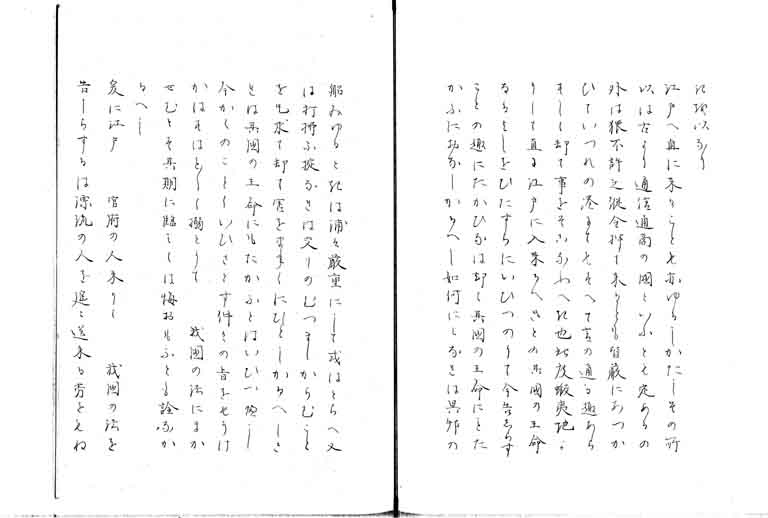 江戸へ直に来ることも亦ゆるしかたしその所
以は古より通信通商の国といふとも定あるの
外は猥不許之縦令押て来りとも皆厳にあつか
ひていつれの港にてもすへて言の通る趣あら
すして却て事をそこなふへき也此度蝦夷地よ
りして直に江戸に入来るへきとの其国の王命
なるよしをひたすらにいひつのりて今告しらす
ことの趣にたかひなは却て其国の王命にもた
かふにおなしかるへし如何にとなれは異邦の
船みゆるときは浦々厳重にして或はとらへ又
は打拂ふ掟なれは交りのむつましからむこと
を乞求て却て害をまねくにひとしかるへしさ
れは其国の王命にもたかふとはいひつへし
今かくのことくいひさとす件々の旨をもうけ
かはすはとく搦とりて 我国の法にまか
せむとす其期に臨ては悔おもふとも詮なか
るへし
爰に江戸 官府の人来りて 我国の法を
告しらするは漂流の人を遙々送来る労をもね